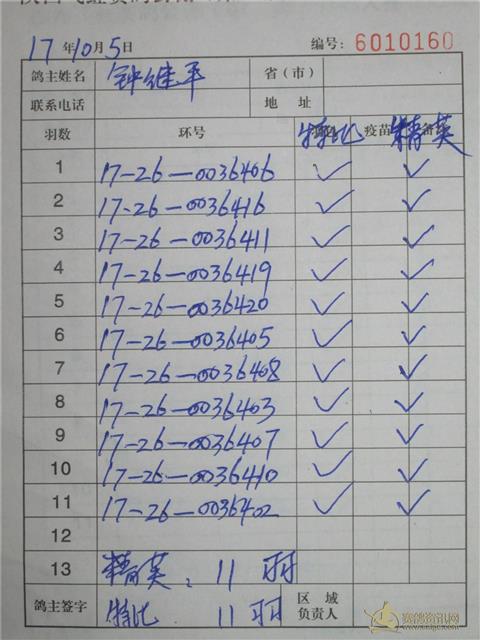 17年10月5日 编号：6010160
鸽主姓名 钟继平 省（市）
联系电话 地址
羽数 环号 特比 疫苗 精英
1 17-26-0036406 ✓ ✓
2 17-26-0036416 ✓ ✓
3 17-26-0036411 ✓ ✓
4 17-26-0036419 ✓ ✓
5 17-26-0036420 ✓ ✓
6 17-26-0036405 ✓ ✓
7 17-26-0036408 ✓ ✓
8 17-26-0036403 ✓ ✓
9 17-26-0036407 ✓ ✓
10 17-26-0036410 ✓ ✓
11 17-26-0036402 ✓ ✓
12
13 精英：11羽
鸽主签字 特比 11羽 区域负责人